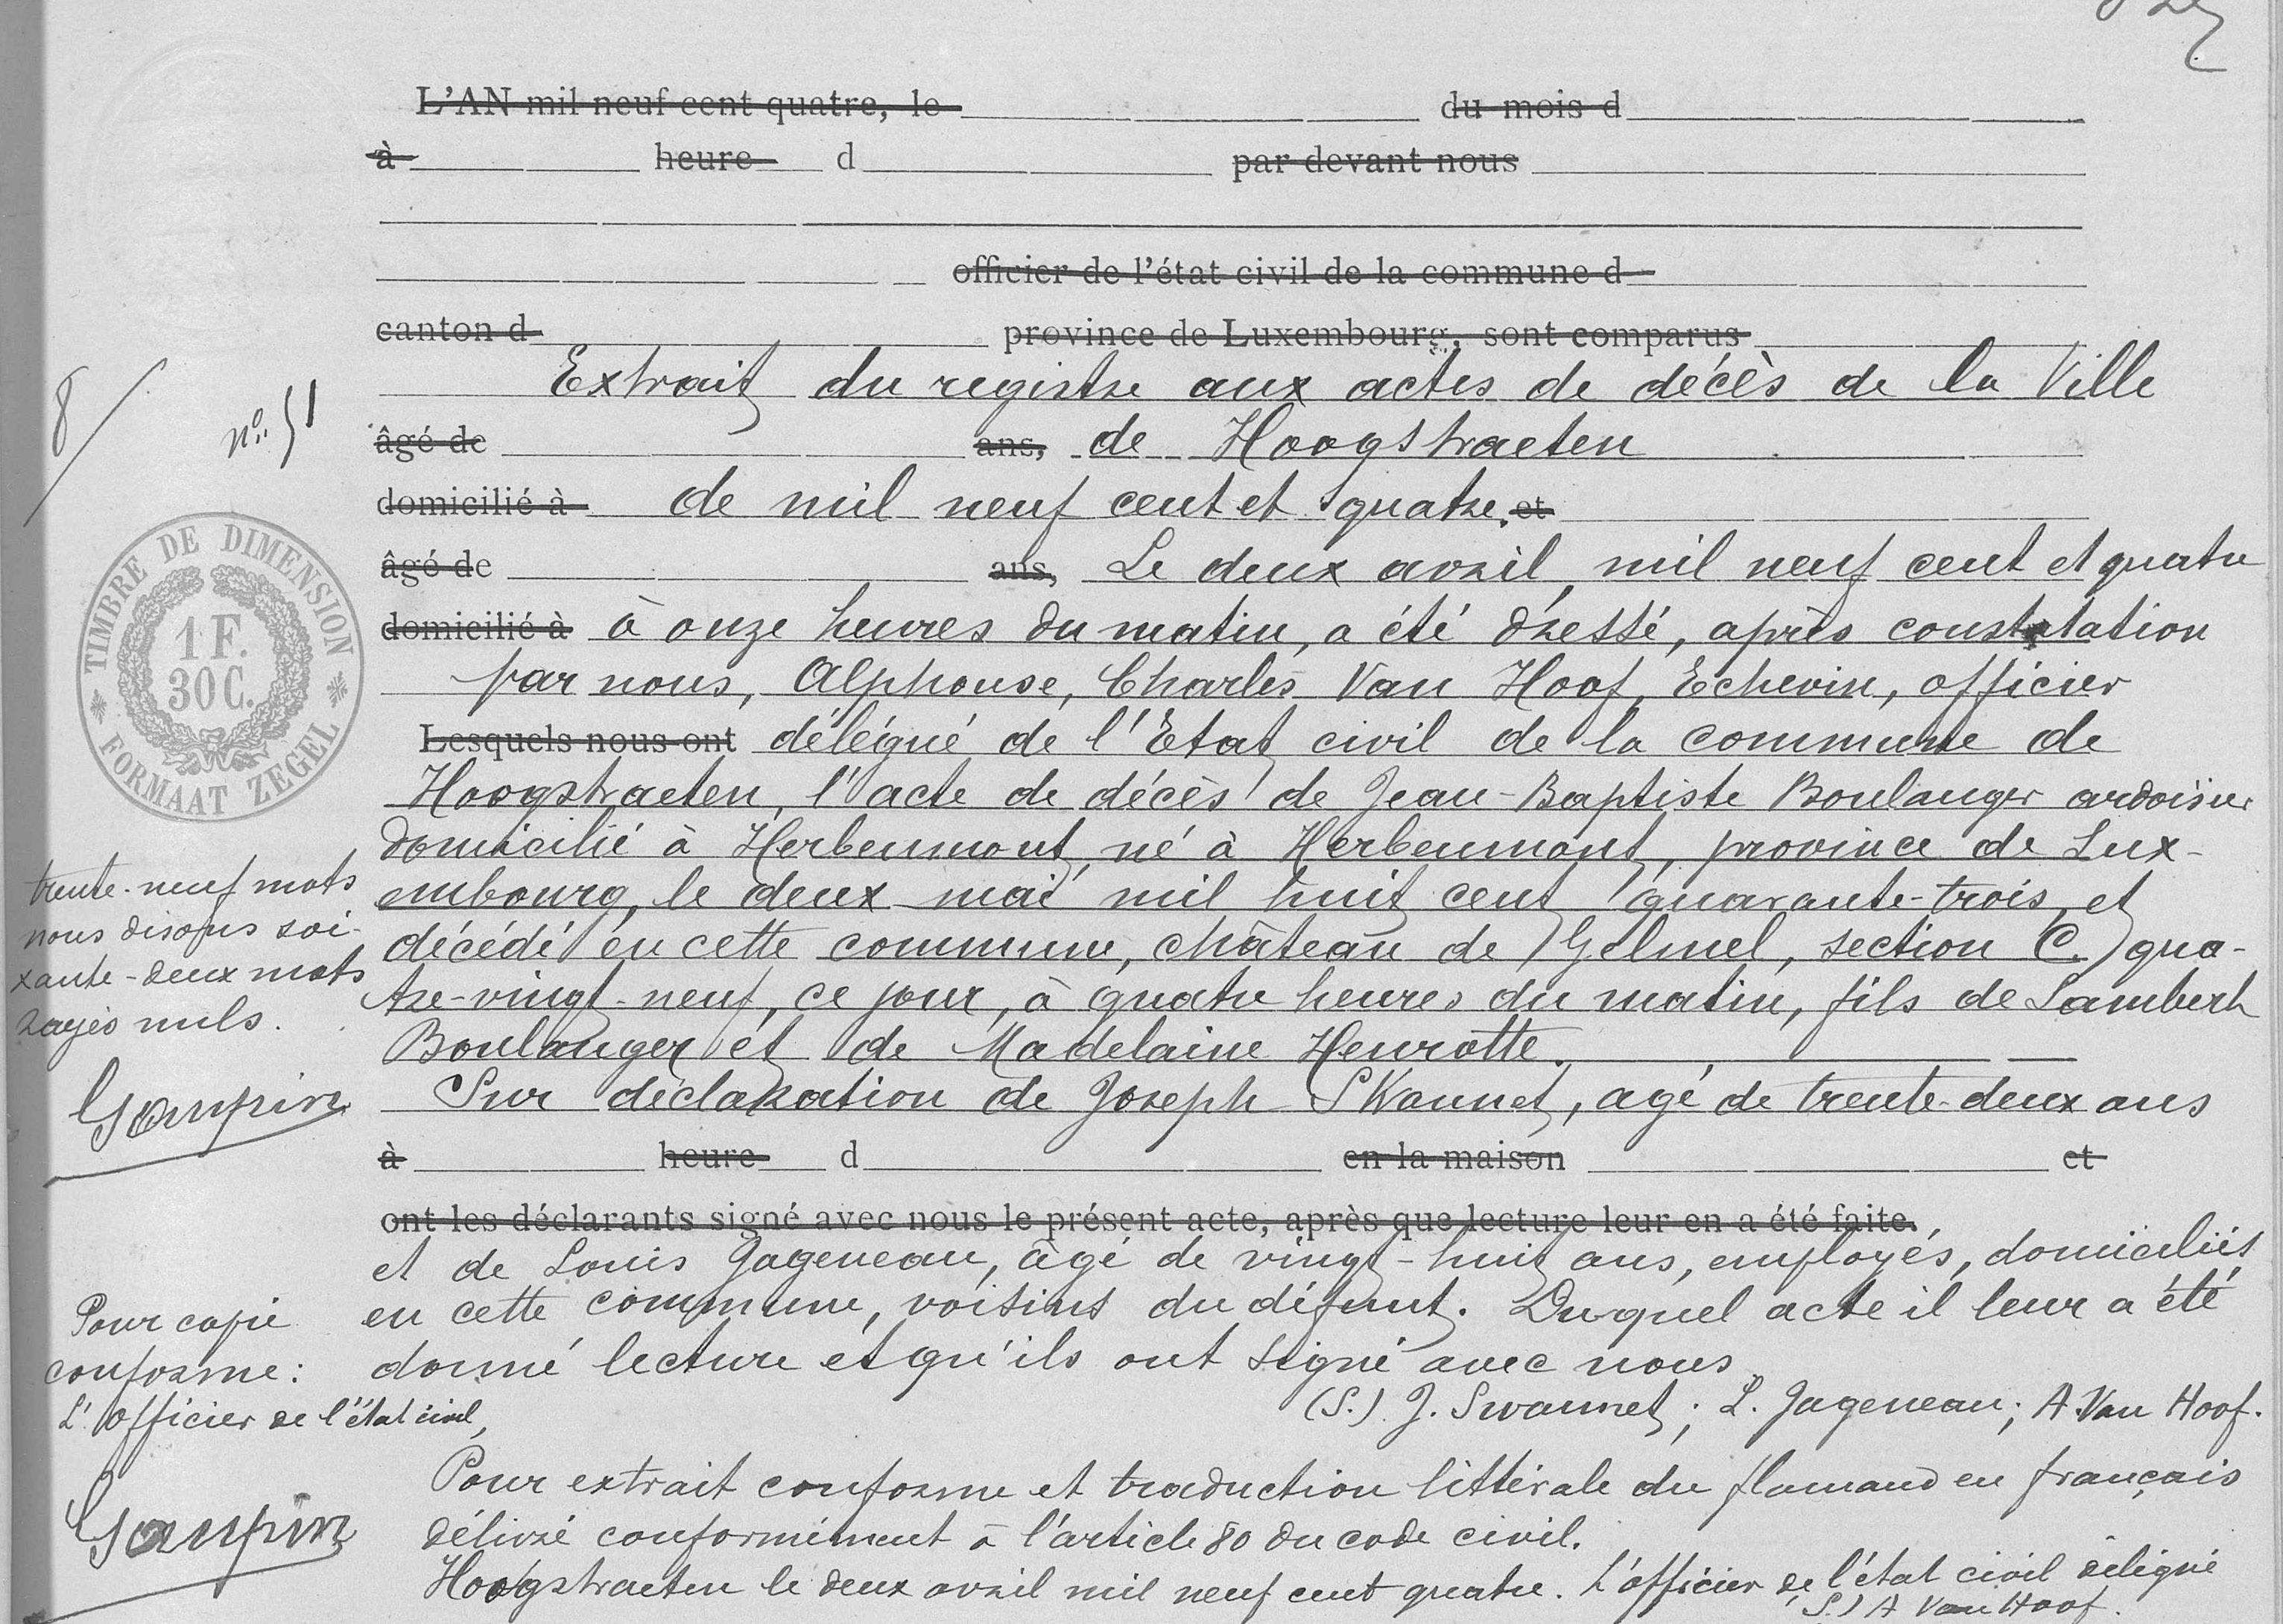 L'AN mil neuf cent quatre, le du mois d
à heure d par devant nous
officier de l'état civil de la commune d
canton d province de Luxembourg, sont comparus
8/
n° 51
Extrait du registre aux actes de décès de la Ville
âgé de ans, de Hoogstraeten
domicilié à de mil neuf cent et quatre. et
âgé de ans, Le deux avril, mil neuf cent et quatre
domicilié à à onze heures du matin, a été dressé, après constatation
par nous, Alphonse, Charles Van Hoof, Echevin, officier
Lesquels nous ont délégué de l'Etat civil de la commune de
Hoogstraeten, l'acte de décès de Jean-Baptiste Boulanger ardoisier
domicilié à Herbeumont, né à Herbeumont, province de Lux-
embourg, le deux mai mil huit cent quarante-trois, et
décédé en cette commune, château de Gelmel, section C. qua-
tre-vingt-neuf, ce jour, à quatre heures du matin, fils de Lambert
Boulanger et de Madelaine Henrotte.
Sur déclaration de Joseph SWannet, agé de trente-deux ans
à heure d en la maison et
ont les déclarants signé avec nous le présent acte, après que lecture leur en a été faite.
et de Louis Jageneau, âgé de vingt-huit ans, employés, domiciliés
en cette commune, voisins du défunt. Duquel acte il leur a été
donné lecture et qu'ils ont signé avec nous
(S.) J. Swannet; L. Jageneau; A. Van Hoof.
Pour extrait conforme et traduction littérale du flamand en français
délivré conformément à l'article 80 du code civil.
Hoogstraeten le deux avril mil neuf cent quatre. L'officier de l'état civil délégué
S.) A Van Hoof.
TIMBRE DE DIMENSION
1 F.
30 C.
FORMAAT ZEGEL
trente-neuf mots
nous disons soi-
xante-deux mots
rayés nuls.
Pour copie
conforme:
L'officier de l'état civil,